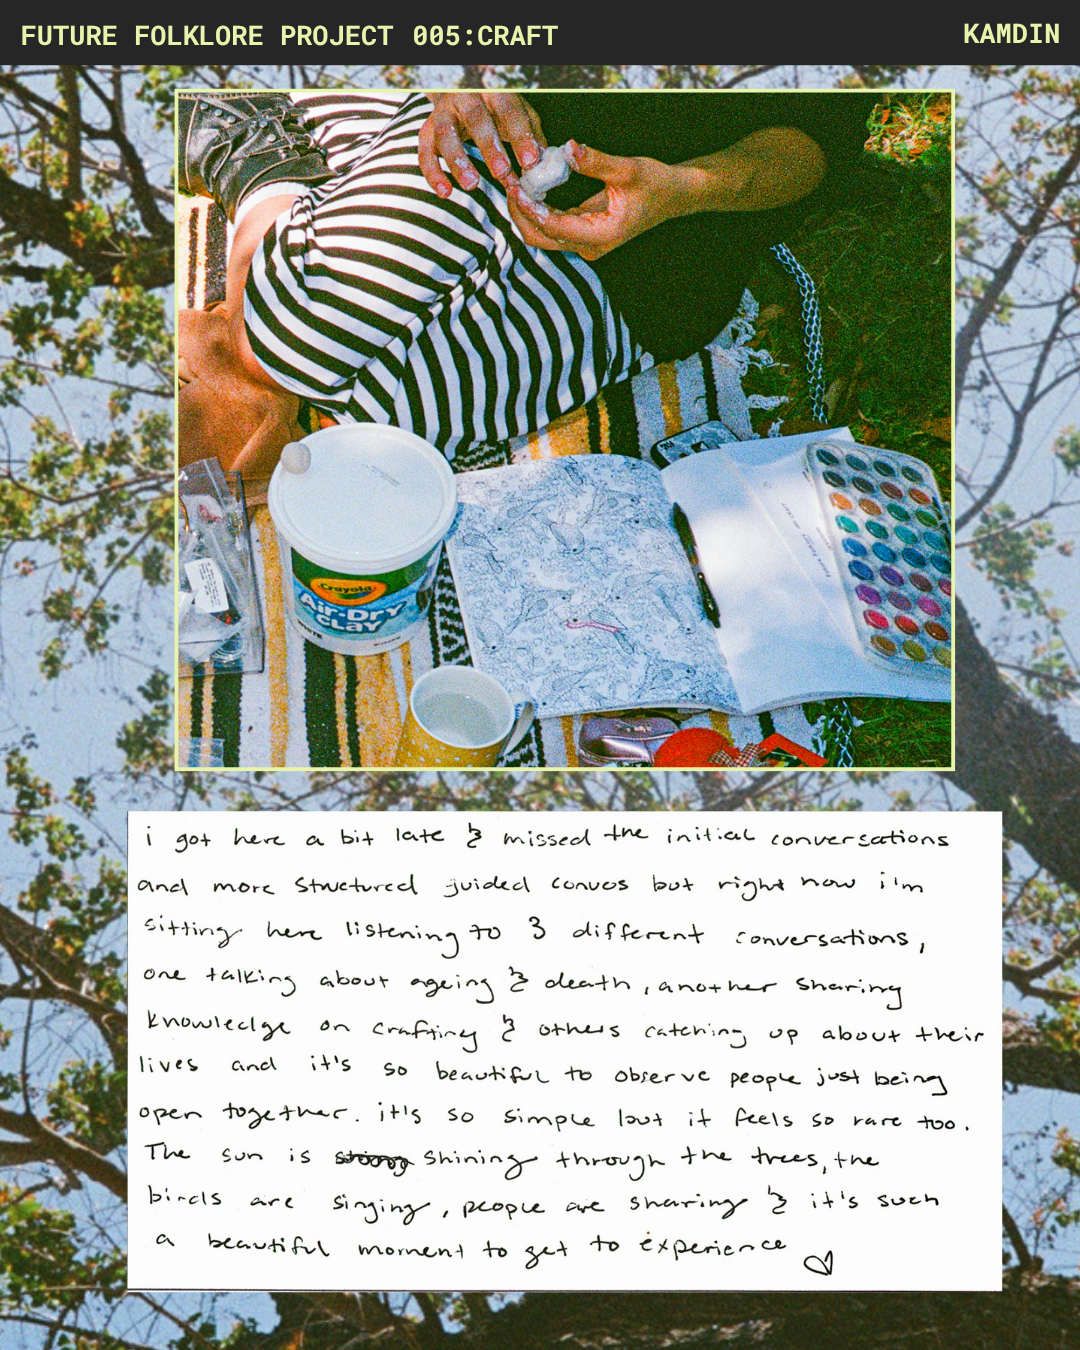 FUTURE FOLKLORE PROJECT 005:CRAFT
KAMDIN
Crayola
Air-Dry
CLAY
WHITE
i got here a bit late & missed the initial conversations
and more structured guided convos but right now i'm
sitting here listening to 3 different conversations,
one talking about ageing & death, another sharing
knowledge on crafting & others catching up about their
lives and it's so beautiful to observe people just being
open together. it's so simple but it feels so rare too.
The sun is shining through the trees, the
birds are singing, people are sharing & it's such
a beautiful moment to get to experience